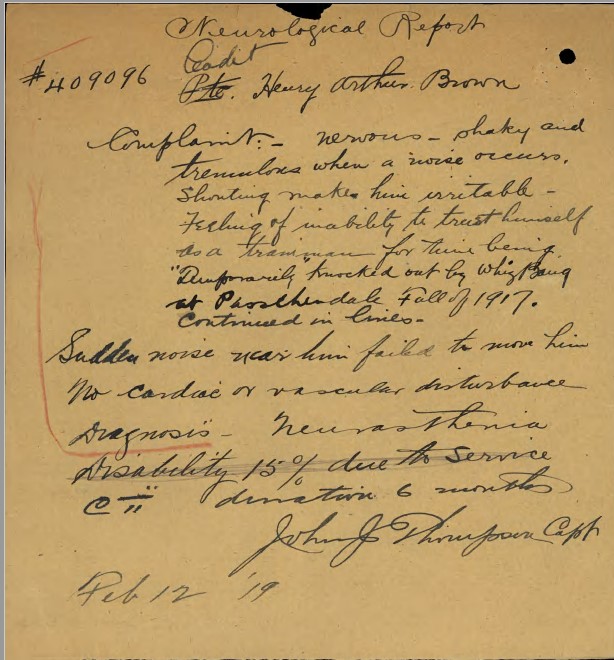 Neurological Report
Cadet
#409096 Pte. Henry Arthur Brown
Complaint:- nervous - shaky and
tremulous when a noise occurs.
Shouting makes him irritable -
Feeling of inability to trust himself
as a trainman for time being.
"Temporarily" knocked out by Whiz Bang
at Passchendale Fall of 1917.
Continued in lines.
Sudden noise near him failed to move him
No cardiac or vascular disturbance
Diagnosis - Neurasthenia
Disability 15% due to Service
duration 6 months
John J Thompson Capt
Feb 12 '19